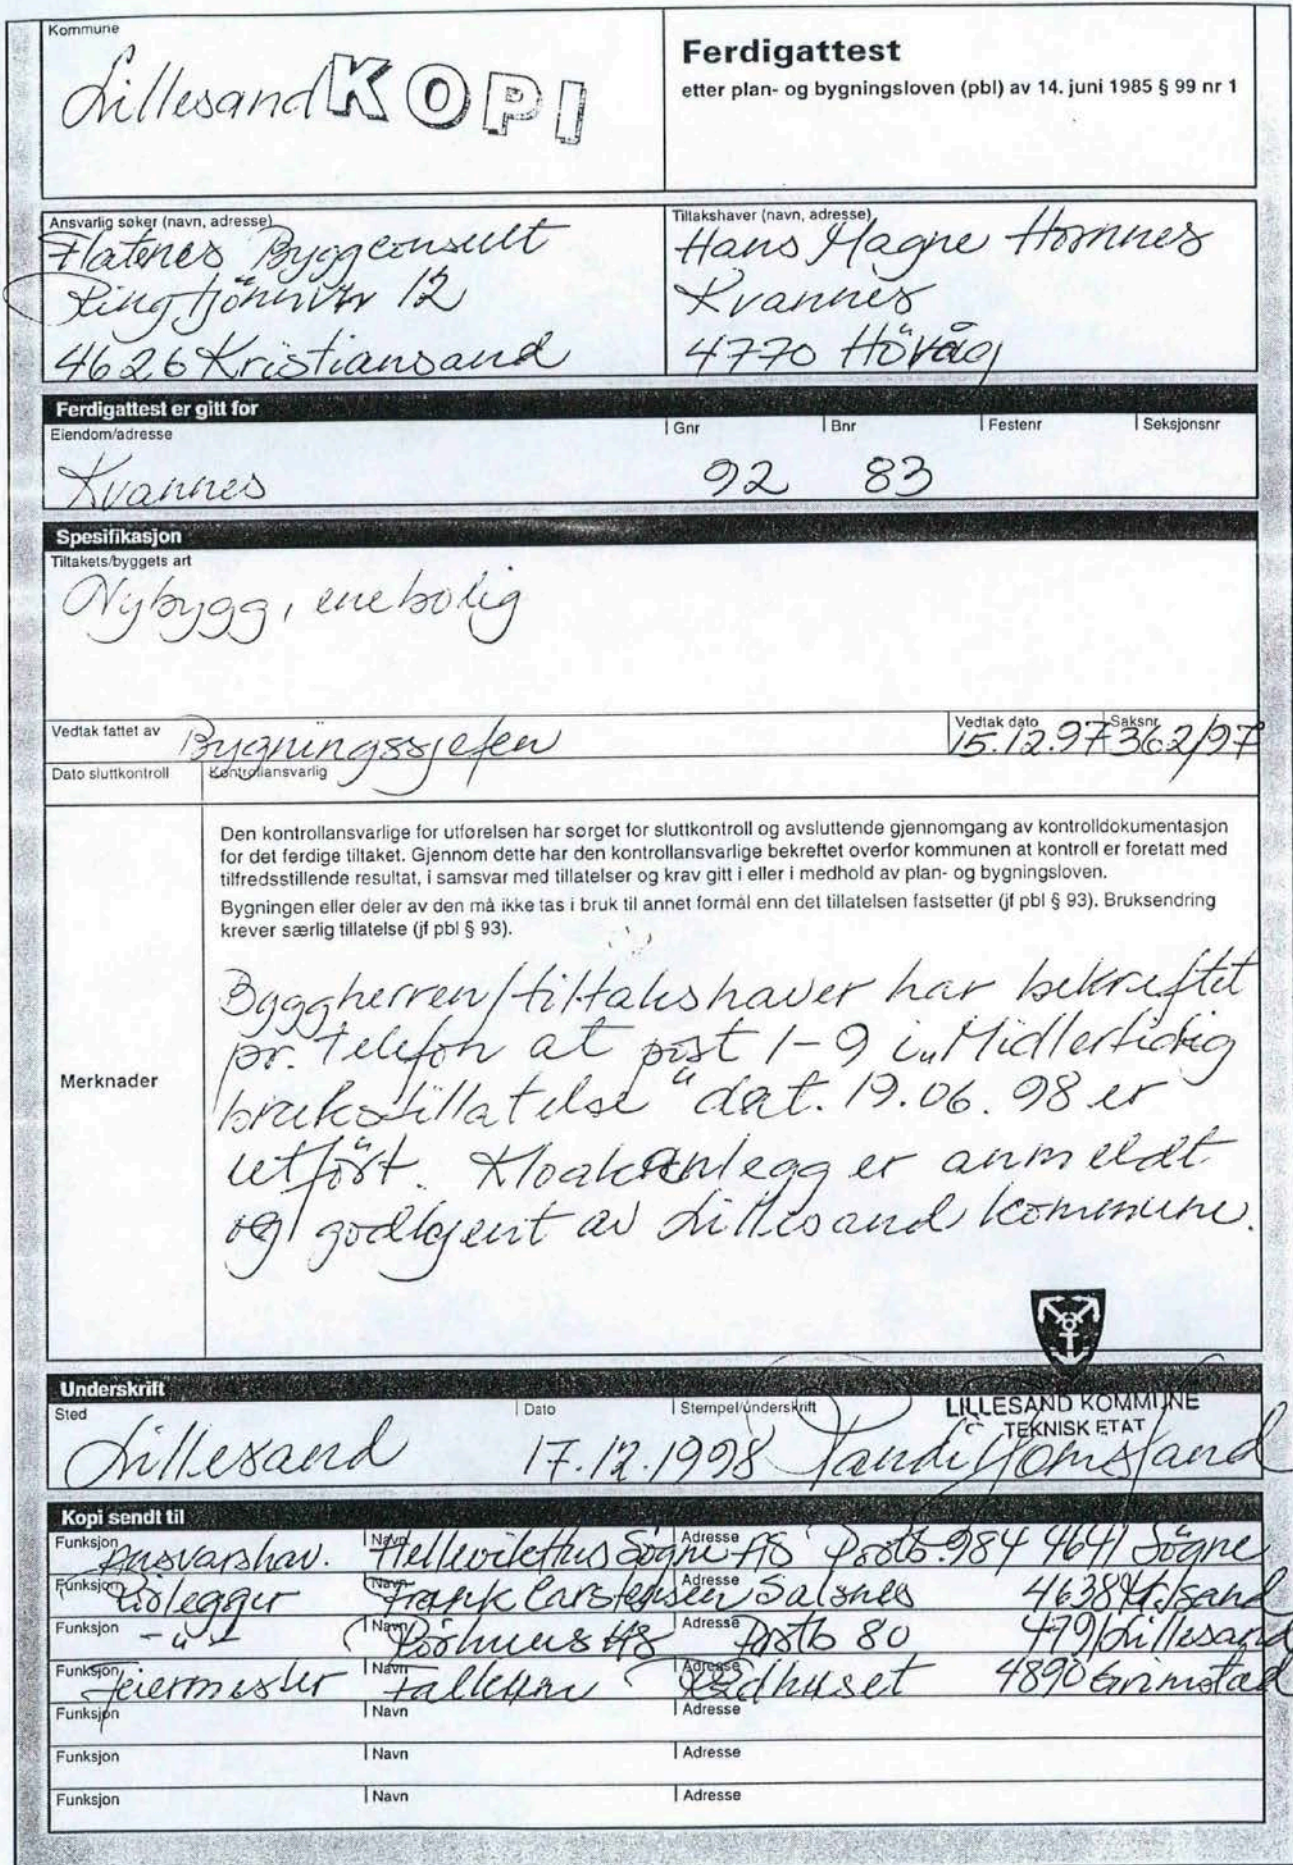 Kommune
Lillesand KOPI
Ferdigattest
etter plan- og bygningsloven (pbl) av 14. juni 1985 § 99 nr 1
Ansvarlig søker (navn, adresse)
Flatenes Byggconsult
12
4626 Kristiansand
Tiltakshaver (navn, adresse)
Hans Magne Hornnes
Kvannes
4770 Hövåg
Ferdigattest er gitt for
Eiendom/adresse Gnr Bnr Festenr Seksjonsnr
Kvannes 92 83
Spesifikasjon
Tiltakets/byggets art
Nybygg, enebolig
Vedtak fattet av Bygningssjefen Vedtak dato 15.12.97 Saksnr 362/97
Dato sluttkontroll Kontrollansvarlig
Merknader
Den kontrollansvarlige for utførelsen har sørget for sluttkontroll og avsluttende gjennomgang av kontrolldokumentasjon
for det ferdige tiltaket. Gjennom dette har den kontrollansvarlige bekreftet overfor kommunen at kontroll er foretatt med
tilfredsstillende resultat, i samsvar med tillatelser og krav gitt i eller i medhold av plan- og bygningsloven.
Bygningen eller deler av den må ikke tas i bruk til annet formål enn det tillatelsen fastsetter (jf pbl § 93). Bruksendring
krever særlig tillatelse (jf pbl § 93).
Byggherren/tiltakshaver har bekreftet
pr. telefon at post 1-9 i „Midlertidig
brukstillatelse" dat. 19.06.98 er
utfört. Kloakkanlegg er anmeldt
og godkjent av Lillesand kommune.
Underskrift
Sted Dato Stempel/underskrift
LILLESAND KOMMUNE
TEKNISK ETAT
Lillesand 17.12.1998
Kopi sendt til
Funksjon Ansvarshav. Navn Hellevikhus Søgne AS Adresse Postb. 984 4641 Sögne
Funksjon Rörlegger Navn Frank Carstensen Adresse Salsnes 4638 Kr.sand
Funksjon -"- Navn Rörhuus AS Adresse Postb 80 4791 Lillesand
Funksjon Feiermester Navn Adresse Rådhuset 4890 Grimstad
Funksjon Navn Adresse
Funksjon Navn Adresse
Funksjon Navn Adresse